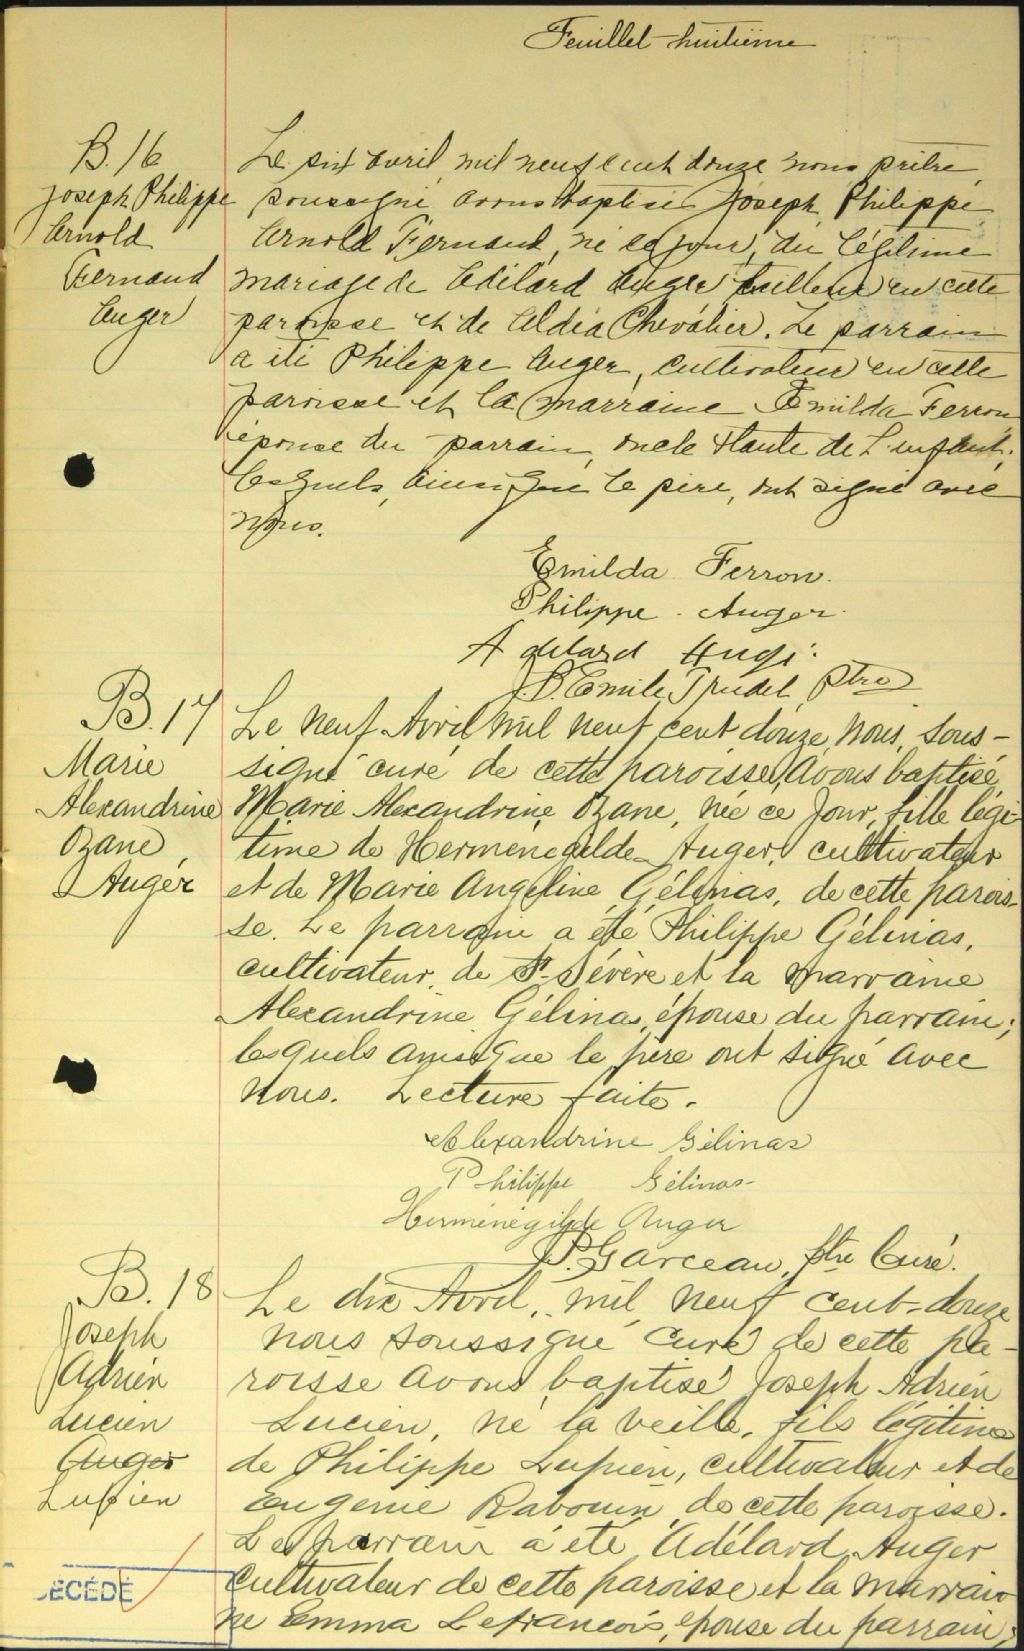 Feuillet huitième
B. 16
Joseph Philippe
Arnold
Fernand
Auger
Le six avril mil neuf cent douze nous prêtre
soussigné avons baptisé Joseph Philippe
Arnold Fernand, né ce jour, du légitime
mariage de Adélard Auger tailleur en cette
paroisse et de Aldéa Chevalier. Le parrain
a été Philippe Auger, cultivateur en cette
paroisse et la marraine Emilda Ferron
épouse du parrain, oncle & tante de l'enfant,
lesquels, ainsi que le père, ont signé avec
nous.
Emilda Ferron.
Philippe Auger
Adelard Auge
J. B. Emile Trudel, ptre
B. 17
Marie
Alexandrine
Ozane
Auger
Le neuf Avril mil neuf cent douze, nous, sous-
signé curé de cette paroisse, avons baptisé
Marie Alexandrine Ozane, née ce jour, fille légi-
time de Herménégilde Auger, cultivateur
et de Marie Angeline Gélinas, de cette parois-
se. Le parrain a été Philippe Gélinas,
cultivateur, de St-Sévère et la marraine
Alexandrine Gélinas, épouse du parrain;
lesquels ainsi que le père ont signé avec
nous. Lecture faite.
Alexandrine Gélinas
Philippe Gélinas
Herménégilde Auger
J. P. Garceau, Ptre Curé.
B. 18
Joseph
Adrien
Lucien
Auger
Lupien
Le dix Avril, mil neuf cent-douze
nous soussigné curé de cette pa-
roisse avons baptisé Joseph Adrien
Lucien, né la veille, fils légitime
de Philippe Lupien, cultivateur et de
Eugenie Rabouin, de cette paroisse.
Le parrain a été Adélard Auger
cultivateur de cette paroisse et la marrai-
ne Emma Lefrancois, épouse du parrain;
DÉCÉDÉ